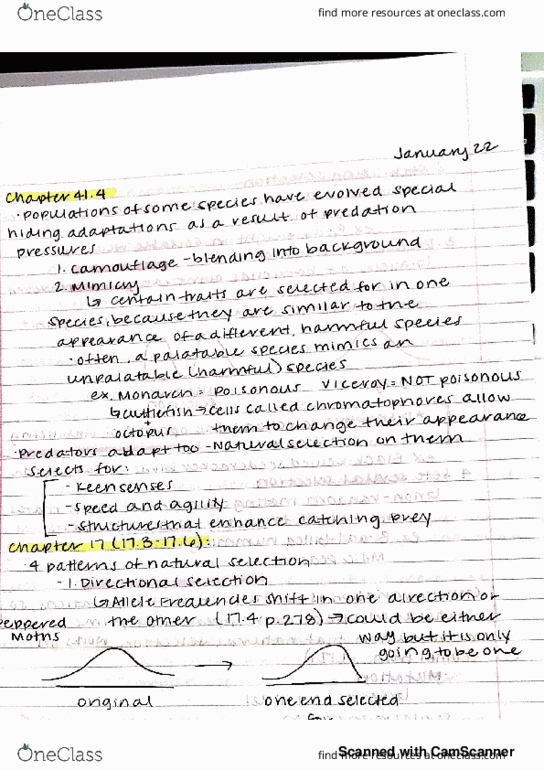 OneClass
find more resources at oneclass.com
January 22
Chapter 41.4
· populations of some species have evolved special
hiding adaptations as a result of predation
pressures
1. camouflage - blending into background
2. Mimicry
↳ certain traits are selected for in one
species, because they are similar to the
appearance of a different, harmful species
· often, a palatable species mimics an
unpalatable (harmful) species
ex. Monarch = Poisonous Viceroy = NOT poisonous
↳ cuttlefish → cells called chromatophores allow
+
octopus them to change their appearance
· Predators adapt too - Natural selection on them
selects for:
- Keen senses
- Speed and agility
- Structures that enhance catching prey
Chapter 17 (17.3-17.6):
· 4 patterns of natural selection
- 1. Directional selection
↳ Allele Frequencies shift in one direction or
Peppered the other (17.4 p.278) → could be either
Moths way but it is only
going to be one
→
original one end selected
for
OneClass
find more resources at oneclass.com
Scanned with CamScanner